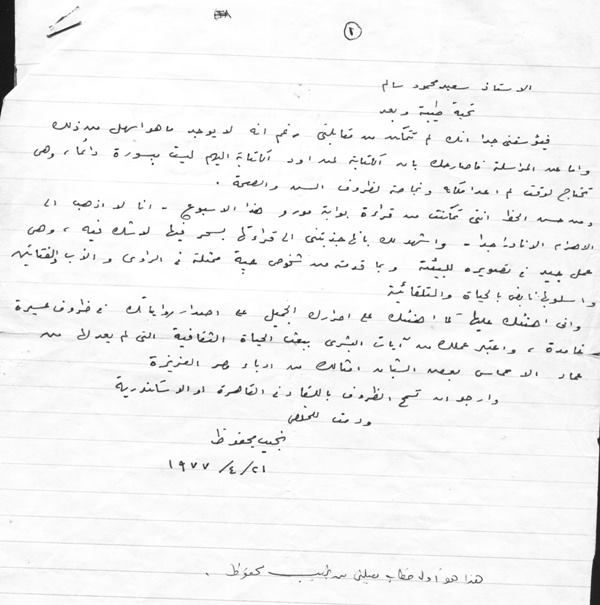 ٢
الاستاذ سعيد محمود سالم
تحية طيبة وبعد
فيؤسفنى جدا انك لم تتمكن من مقابلتى رغم انه لا يوجد ما هو اسهل من ذلك
واما عن المراسلة فاصارحك بان الكتابة لمن اود الكتابة اليهم ليست ميسورة دائما، وهى
تحتاج لوقت لم اعد املكه وبخاصة لظروف السن والصحة.
ومن حسن الحظ اننى تمكنت من قراءة بوابة مورو هذا الاسبوع - انا لا اذهب الى
الاهرام الا نادرا جدا - واشهد لك بانها جذبتنى الى قراءتها بسحر فيها لا شك فيه، وهى
عمل جيد فى تصويره للبيئة وبما قدمت من شخوص حية ممثلة فى الراوى والأب والفتاتين
واسلوبها نابض بالحياة والتلقائية
وانى اهنئك عليها كما اهنئك على اصرارك الجميل على اصدار رواياتك فى ظروف عسيرة
، واعتبر عملك من آيات البشرى ببعث الحياة الثقافية التى لم يعد لها من
عماد الا حماس بعض الشبان امثالك من ادباء مصر العزيزة
وارجو ان تسمح الظروف باللقاء فى القاهرة او الاسكندرية
ودمت للمخلص
نجيب محفوظ
٢١/٤/١٩٧٧
هذا هو أول خطاب يصلنى من نجيب محفوظ.